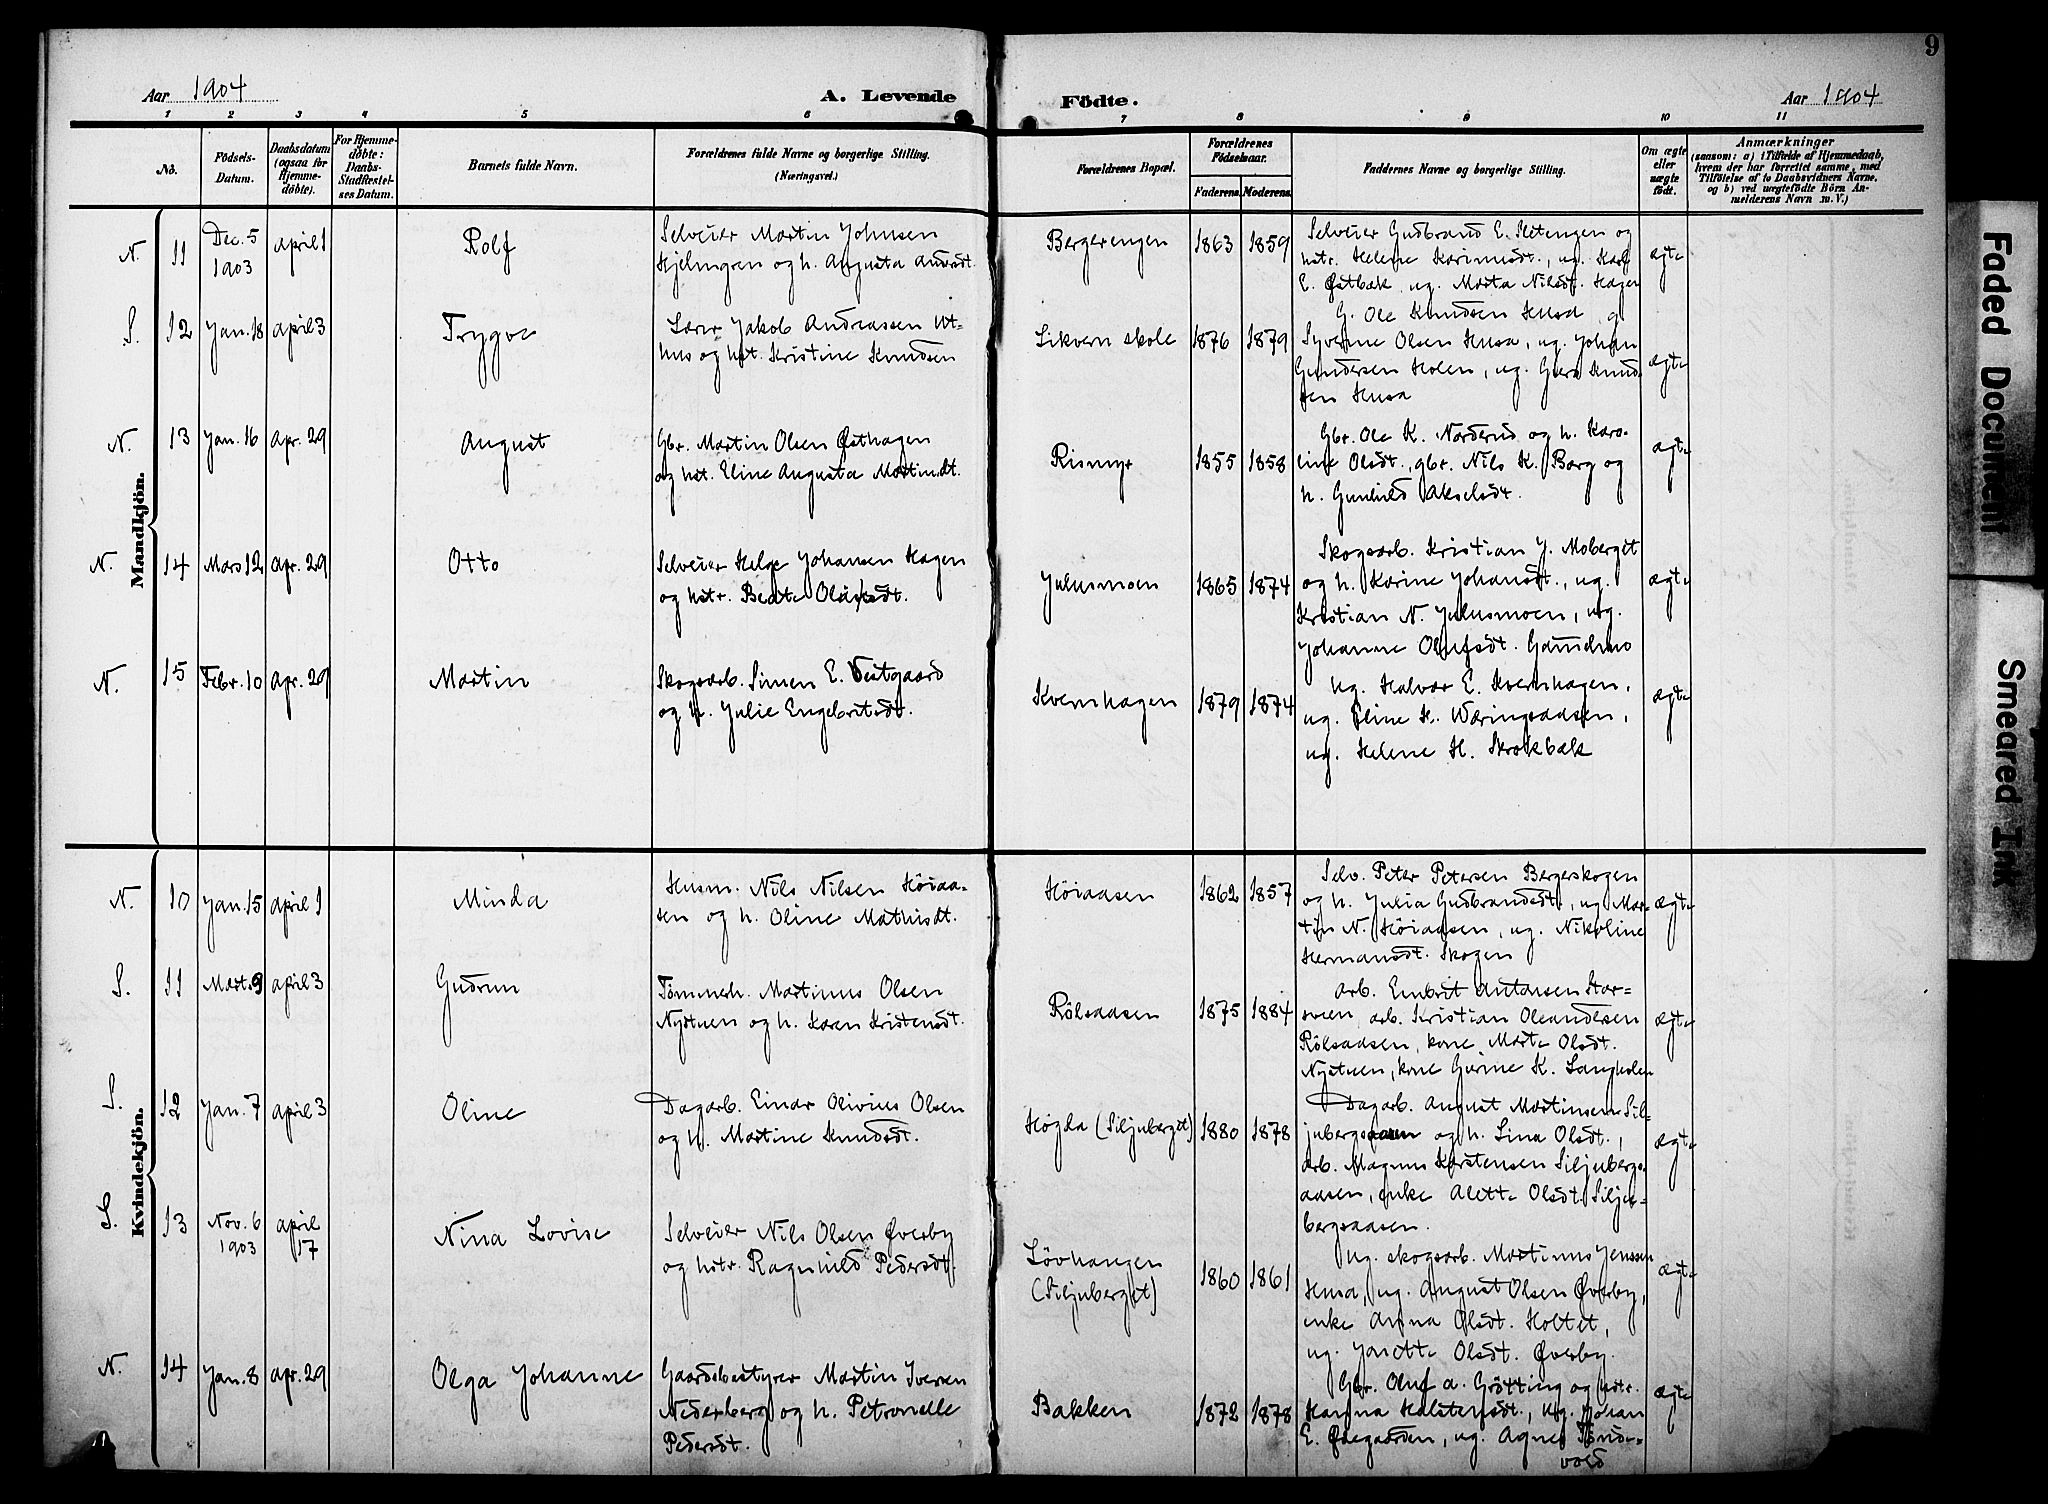 9
Aar 1904
A. Levende Födte.
Aar 1904
1 2 3 4 5 6 7 8 9 10 11
No.
Födsels-
Datum.
Daabsdatum
(ogsaa for
Hjemme-
döbte).
For Hjemme-
döbte:
Daabs-
Stadfæstel-
ses Datum.
Barnets fulde Navn.
Forældrenes fulde Navne og borgerlige Stilling.
(Næringsvei.)
Forældrenes Bopæl.
Forældrenes
Födselsaar.
Faderens. Moderens.
Faddernes Navne og borgerlige Stilling.
Om ægte
eller
uægte
født.
Anmærkninger
(saasom: a) i Tilfælde af Hjemmedaab,
hvem der har forrettet samme, med
Tilföielse af to Daabsvidners Navne,
og b) ved uægtefödte Börn An-
melderens Navn m. V.)
Mandkjön.
N. 11 Dec. 5 1903 april 1 Rolf
Selveier Martin Johnsen
Hjelmgren og h. Augusta Andrsdt.
Bergerengen 1863 1859
Selveier Gudbrand E. Sletengen og
hstr. Helene Karinusdt., ug. Karl
E. Østbæk, ug. Marta Nilsdt. Hagen
ægte
S. 12 Jan. 18 april 3 Trygve
Lærer Jakob Andreassen Ut-
hus og hst. Kristine Knudsen
Likvern skole 1876 1879
G. Ole Knudsen Husa, g.
Syverine Olsen Husa, ug. Johan
Gundersen Holen, ug. Gura Knud-
sen Husa
ægte
N. 13 Jan. 16 apr. 29 August
Gbr. Martin Olsen Østhagen
og hst. Eline Augusta Martinsdt.
Rismyr 1855 1858
Gbr. Ole K. Norderud og h. Karo-
line Olsdt., gbr. Nils K. Borg og
h. Gunhild Akselsdt.
ægte
N. 14 Mars 12 apr. 29 Otto
Selveier Helge Johansen Hagen
og hstr. Beate Olausdt.
Julusmoen 1865 1874
Skogsarb. Kristian J. Moberget
og h. Karine Johansdt., ug.
Kristian N. Julusmoen, ug.
Johanne Olufsdt. Gaardmo
ægte
N. 15 Febr. 10 apr. 29 Martin
Skogsarb. Simen E. Vestgaard
og h. Julie Engebretsdt.
Kvernhagen 1879 1874
Ug. Halvor E. Kvernhagen,
ug. Eline H. Væringsaasen,
ug. Helene H. Skrokbæk
ægte
Kvindekjön.
N. 10 Jan. 15 april 1 Minda
Husm. Nils Nilsen Höiaa-
sen og h. Oline Mathisdt.
Höiaasen 1862 1857
Selv. Peter Petersen Bergerskogen
og h. Julia Gudbrandsdt., ug. Mar-
tin N. Höiaasen, ug. Nikoline
Hermansdt. Skogen
ægte
S. 11 Mart. 9 april 3 Gudrun
Tømmerh. Martinus Olsen
Nystuen og h. Karen Kristensdt.
Rölsaasen 1875 1884
arb. Embrit Antonsen Stor-
sveen, arb. Kristian Oleandersen
Rölsaasen, kone Marte Olsdt.
Nystuen, kone Gurine K. Langholen
ægte
S. 12 Jan. 7 april 3 Oline
Dagarb. Einar Olivius Olsen
og h. Martine Knudsdt.
Høgda (Siljuberget) 1880 1878
Dagarb. August Martinsen Sil-
jubergsaasen og h. Lina Olsdt.,
arb. Magnus Karstensen Siljubergs-
aasen, enke Alette Olsdt. Silju-
bergsaasen.
ægte
S. 13 Nov. 6 1903 april 17 Nina Lovise
Selveier Nils Olsen Øverby
og hstr. Ragnhild Pedersdt.
Løvhaugen
(Siljuberget)
1860 1861
Ug. skogsarb. Martinus Jenssen
Husa, ug. August Olsen Øverby,
enke Anna Olsdt. Holtet,
ug. Janette Olsdt. Øverby.
ægte
N. 14 Jan. 8 apr. 29 Olga Johanne
Gaardsbestyrer Martin Iversen
Nederberg og h. Petronelle
Pedersdt.
Bakken 1872 1878
Gbr. Oluf A. Grötting og hstr.
Hanna Halstensdt., ug. Johan
E. Øvergaarden, ug. Agnes Sönde-
vold
ægte
Faded Document
Smeared Ink